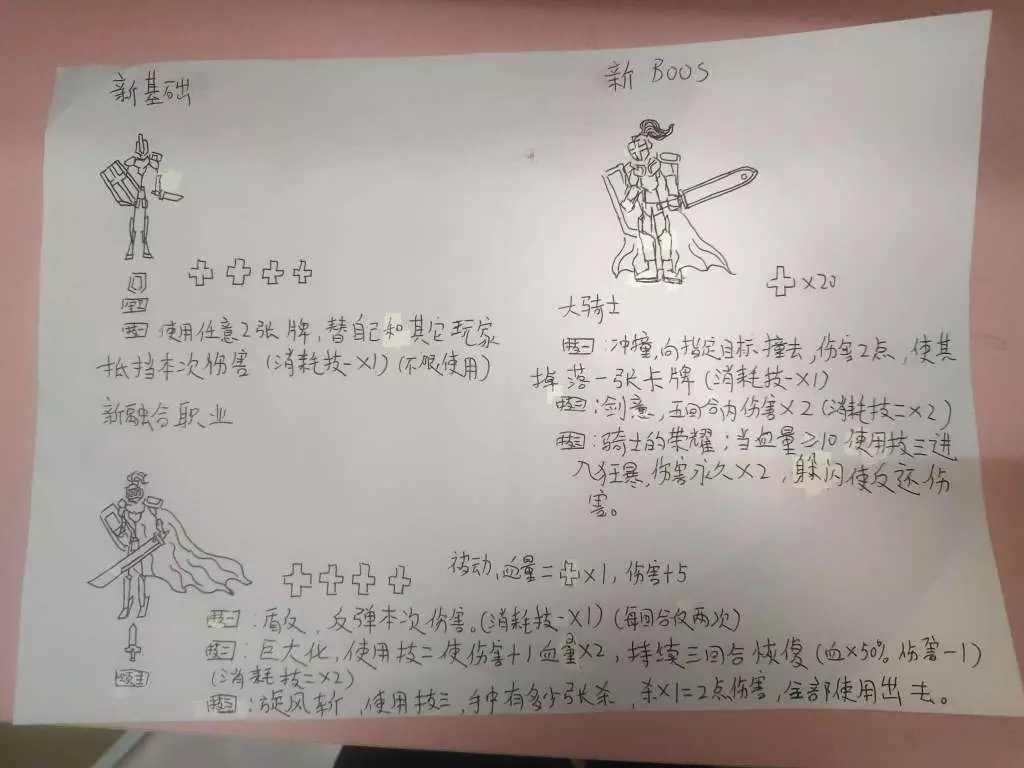 新基础
技一 使用任意2张牌，替自己和其它玩家
抵挡本次伤害（消耗技一×1）（不限使用）
新融合职业
新 BOOS
×20
大骑士
技一：冲撞，向指定目标撞去，伤害2点，使其
掉落一张卡牌（消耗技一×1）
技二：剑意，五回合内伤害×2（消耗技二×2）
技三：骑士的荣耀；当血量≥10 使用技三进
入狂暴，伤害永久×2，躲闪使反还伤
害。
被动，血量=×1，伤害+5
技一：盾反，反弹本次伤害。（消耗技一×1）（每回合仅两次）
技二：巨大化，使用技二使伤害+1血量×2，持续三回合恢复（血×50% 伤害-1）
（消耗技二×2）
技三：旋风斩，使用技三，手中有多少张杀，杀×1=2点伤害，全部使用出去。